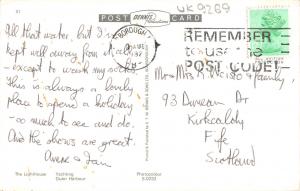 31
POST CARD
DENNIS
UK9269
All that water, but I've
kept well away from it all
- except to wash my socks.
This is always a lovely
place to spend a holiday
- so much to see and do.
And the shows are great.
Anne + Ian
REMEMBER
to use the
POST CODE
Mr + Mrs R. Weist + family,
93 Duncan Dr
Kirkcaldy
Fife
Scotland
The Lighthouse Yachting
Outer Harbour
Photocolour
S.0233